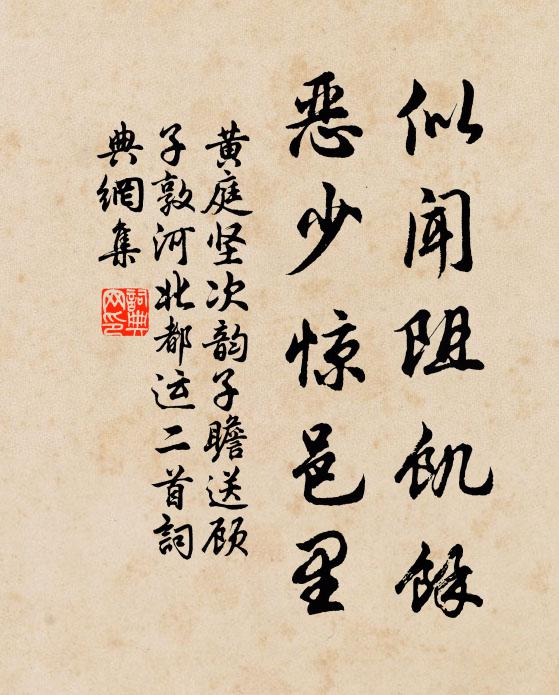 似闻阻飢餘
恶少惊邑里
黄庭坚次韵子瞻送顾
子敦河北都运二首詞
典網集
詞典網印